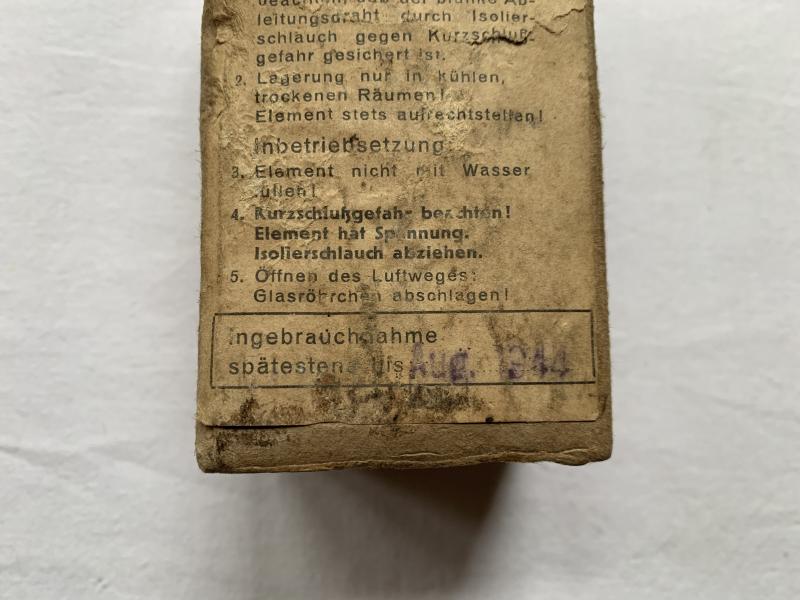 beachten, daß der blanke Ab-
leitungsdraht durch Isolier-
schlauch gegen Kurzschluß-
gefahr gesichert ist.
2. Lagerung nur in kühlen,
trockenen Räumen!
Element stets aufrechtstellen!
Inbetriebsetzung:
3. Element nicht mit Wasser
füllen!
4. Kurzschlußgefahr beachten!
Element hat Spannung.
Isolierschlauch abziehen.
5. Öffnen des Luftweges:
Glasröhrchen abschlagen!
Ingebrauchnahme
spätestens bis Aug. 1944